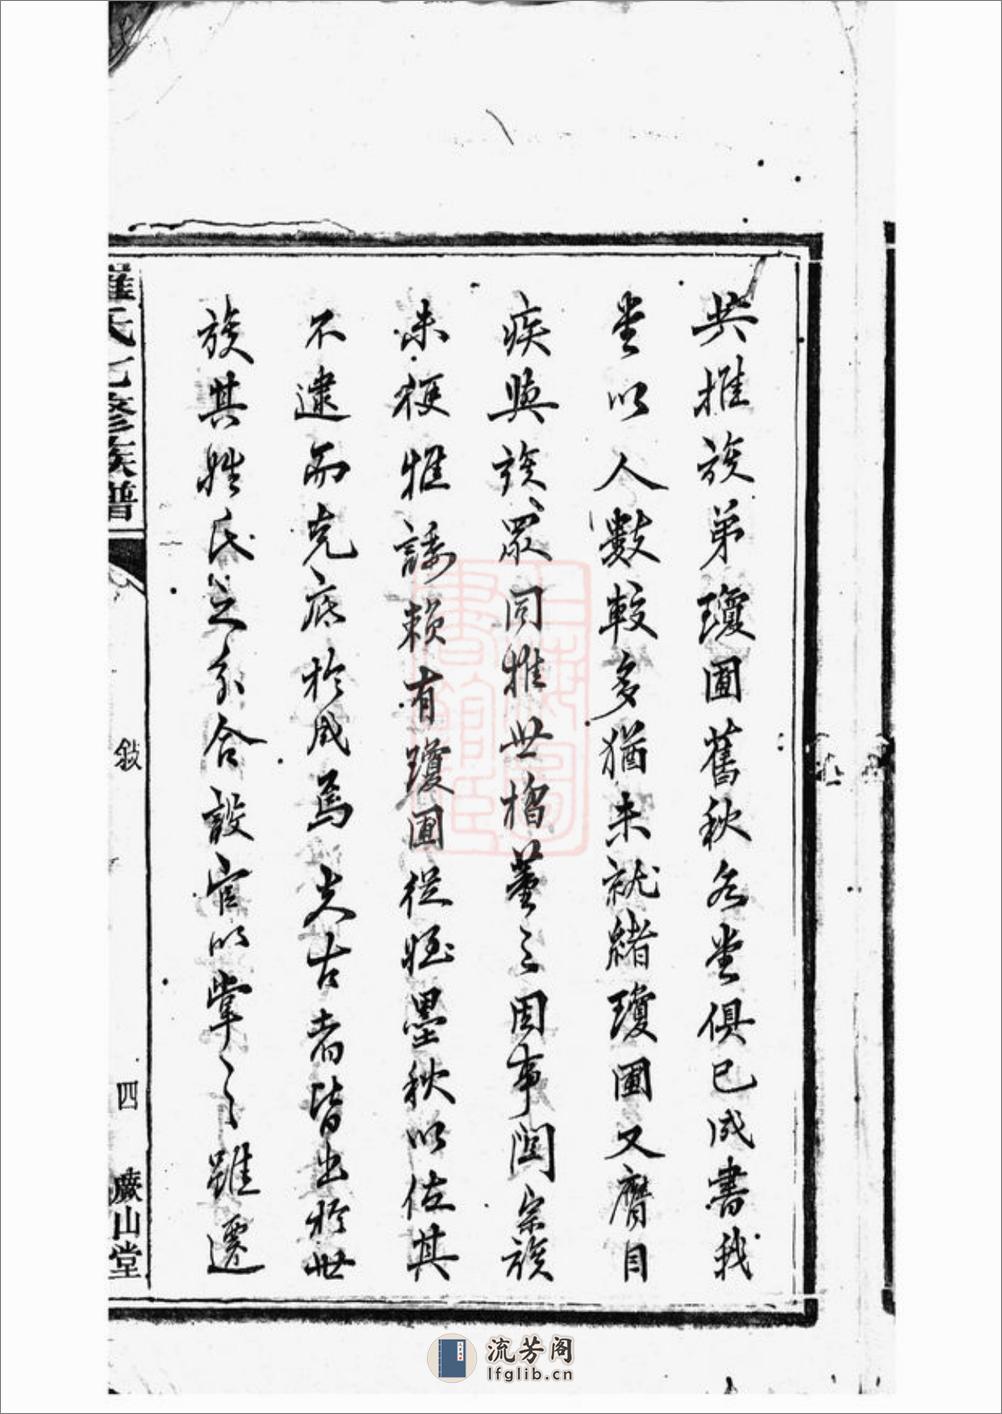 共推族弟瓊圃舊秋各堂俱已成書我
堂以人數較多猶未就緒瓊圃又膺目
疾與族眾同推世楷董之因事関宗族
未便推諉賴有瓊圃從姪墨秋以佐其
不逮而克底於成焉夫古者皆出於世
族其姓氏之分合設官以掌之雖遷
羅氏七修族譜
敍
四
厳山堂
流芳阁
lfglib.cn